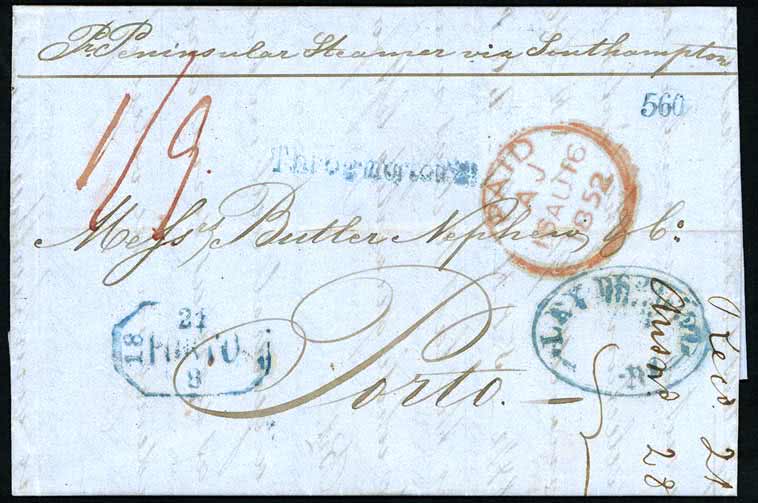 Pr. Peninsular Steamer via Southampton
560
1/9
Throgmorton St
PAID
AJ
16 AU 16
1852
Messrs. Butler Nephew & Co.
21
18 PORTO
8
Porto.
Recd. 21
28